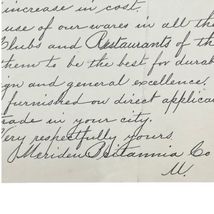 increase in cost.
use of our wares in all the
Clubs and Restaurants of the
them to be the best for durab
ign and general excellence.
furnished on direct applica
trade in your city.
Very respectfully yours
Meriden Britannia Co
M.